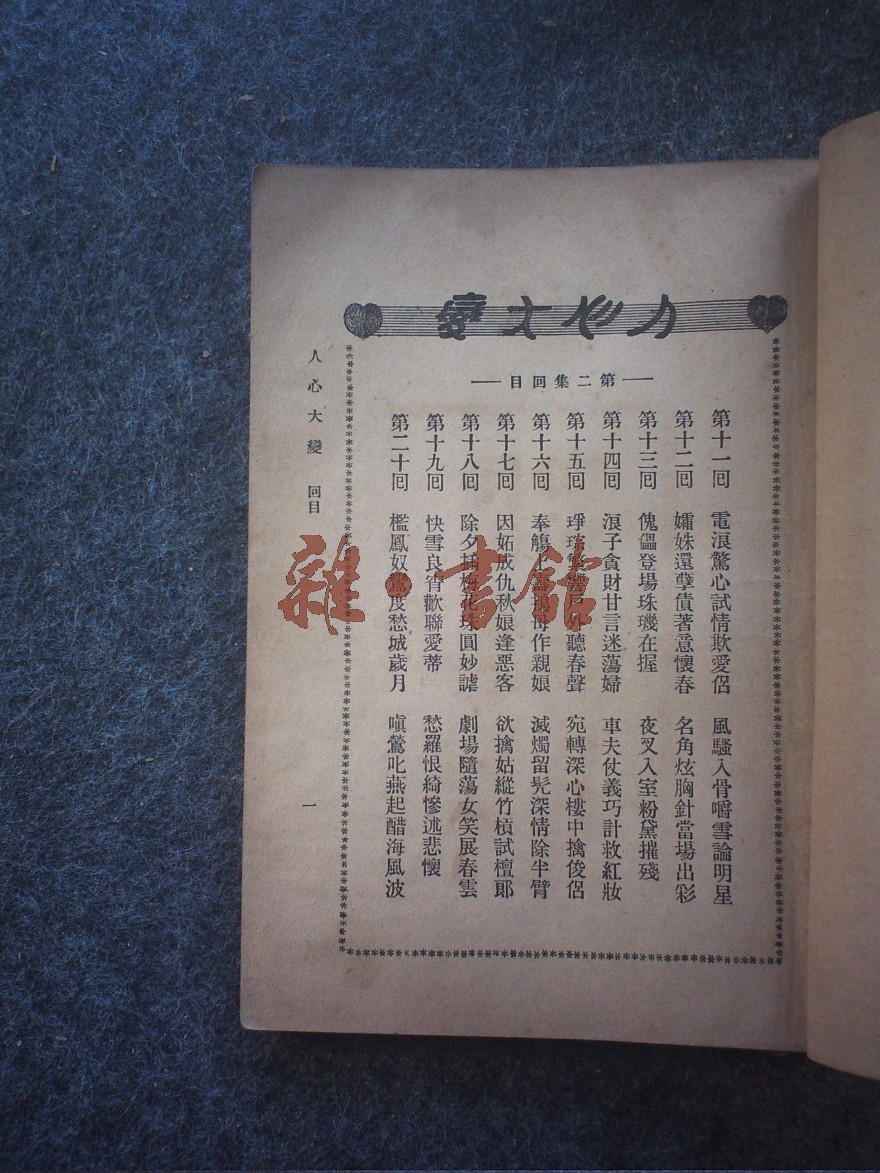 人心大變
第二集回目
第十一回 電浪驚心試情欺愛侶 風騷入骨嚼雪論明星
第十二回 孀姝還孽債著意懷春 名角炫胸針當場出彩
第十三回 傀儡登場珠璣在握 夜叉入室粉黛摧殘
第十四回 浪子貪財甘言迷蕩婦 車夫仗義巧計救紅妝
第十五回 琤瑽繁響局外聽春聲 宛轉深心樓中擒俊侶
第十六回 奉觴上壽鴇母作親娘 滅燭留髡深情除半臂
第十七回 因妬成仇秋娘逢惡客 欲擒姑縱竹槓試檀郎
第十八回 除夕插梅花珠圓妙謔 劇場隨蕩女笑展春雲
第十九回 快雪良宵歡聯愛蒂 愁羅恨綺慘述悲懷
第二十回 檻鳳奴鸞度愁城歲月 嗔鶯叱燕起醋海風波
人心大變 回目
一
雜·書館